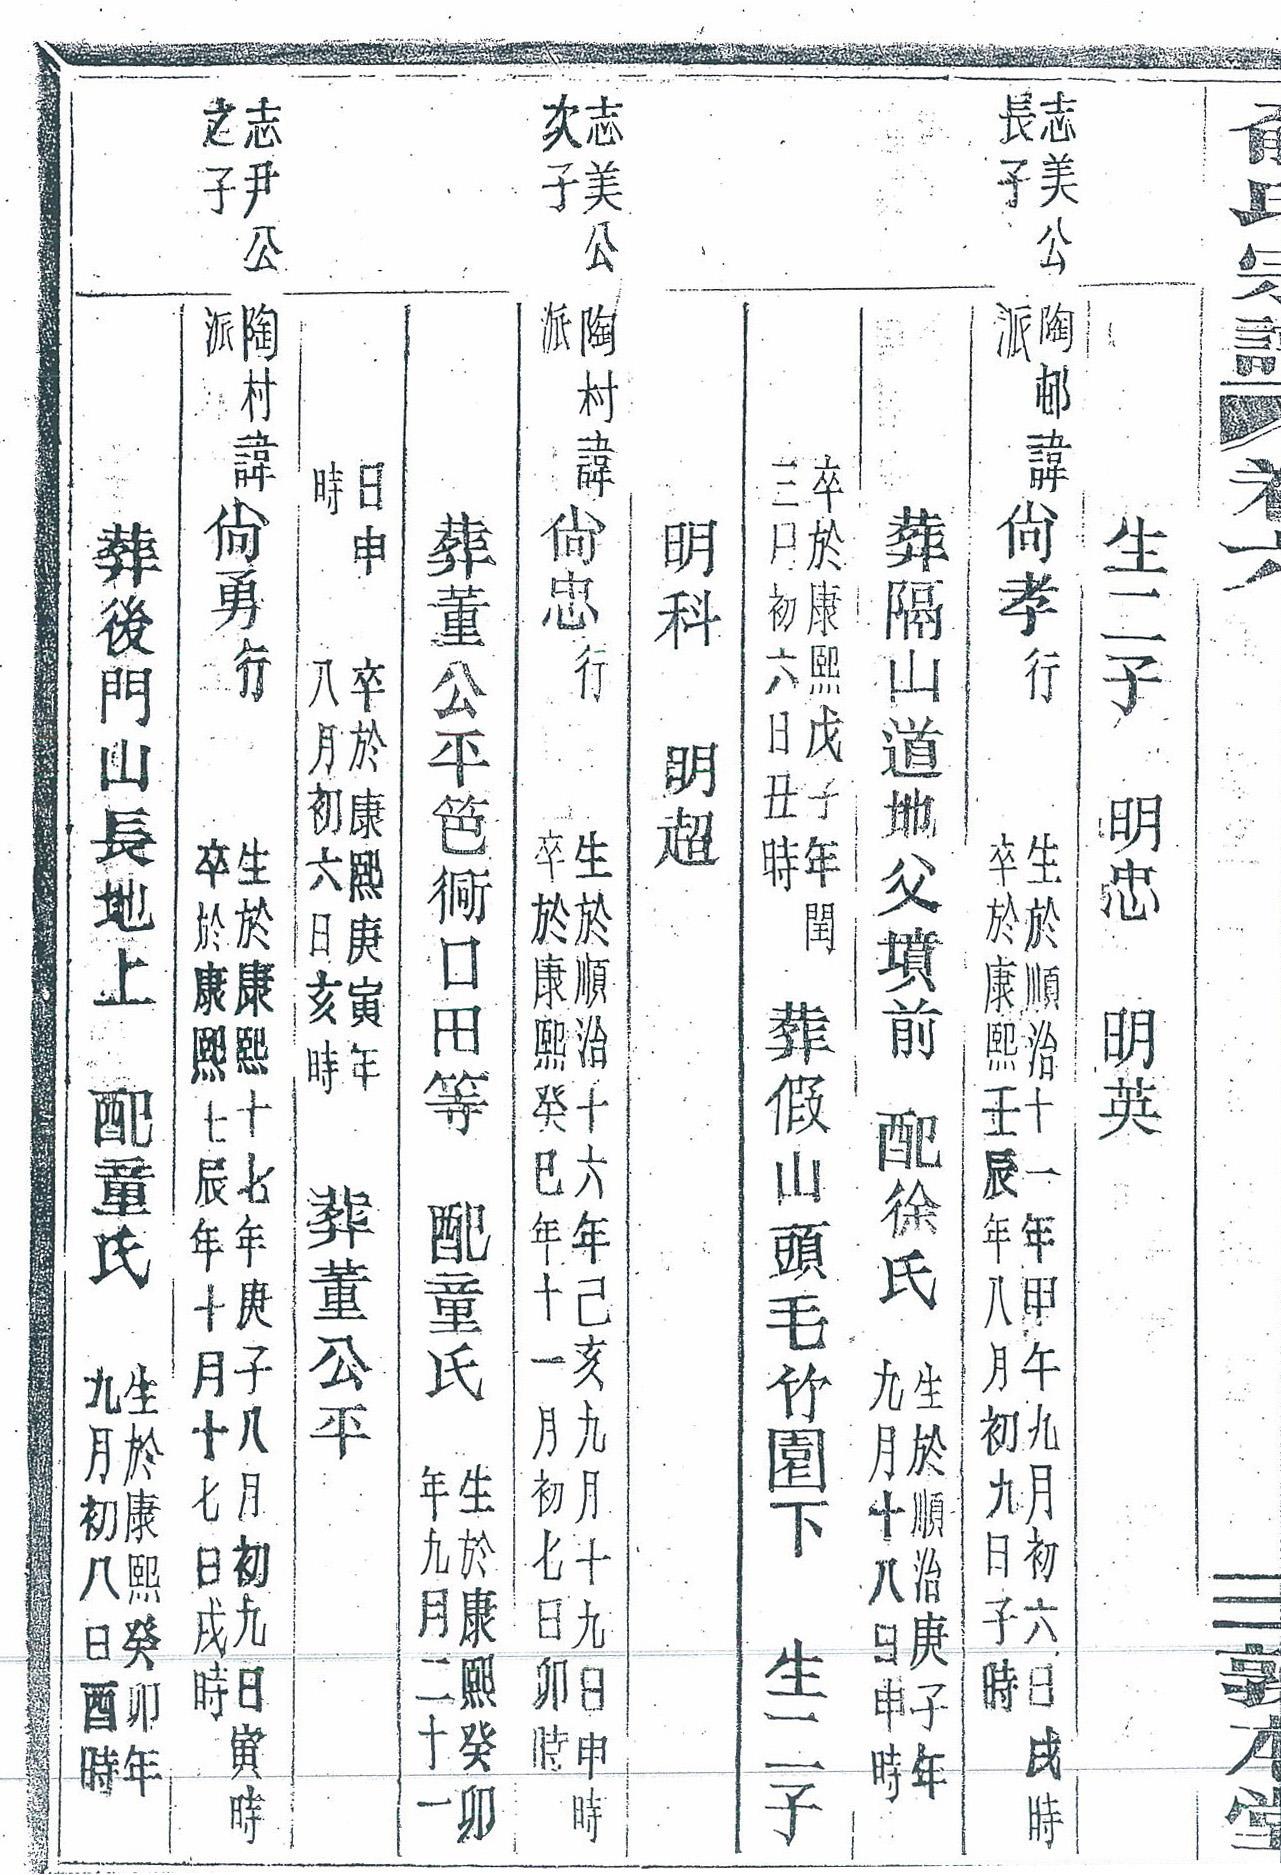 俞氏宗譜 卷六 三 敦本堂
生二子 明忠 明英
志美公
長子
陶邨諱尙孝行
派
生於順治十一年甲午九月初六日戌時
卒於康熙壬辰年八月初九日子時
葬隔山道地父墳前 配徐氏
生於順治庚子年
九月十八日申時
卒於康熙戊子年閏
三月初六日丑時
葬假山頭毛竹園下 生二子
明科 明超
志美公
次子
陶村諱尙忠行
派
生於順治十六年己亥九月十九日申時
卒於康熙癸巳年十一月初七日卯時
葬董公平笆衕口田等 配童氏
生於康熙癸卯
年九月二十一
日申
時
卒於康熙庚寅年
八月初六日亥時
葬董公平
志尹公
之子
陶村諱尙勇行
派
生於康熙十七年庚子八月初九日寅時
卒於康熙七辰年十月十七日戌時
葬後門山長地上 配童氏
生於康熙癸卯年
九月初八日酉時